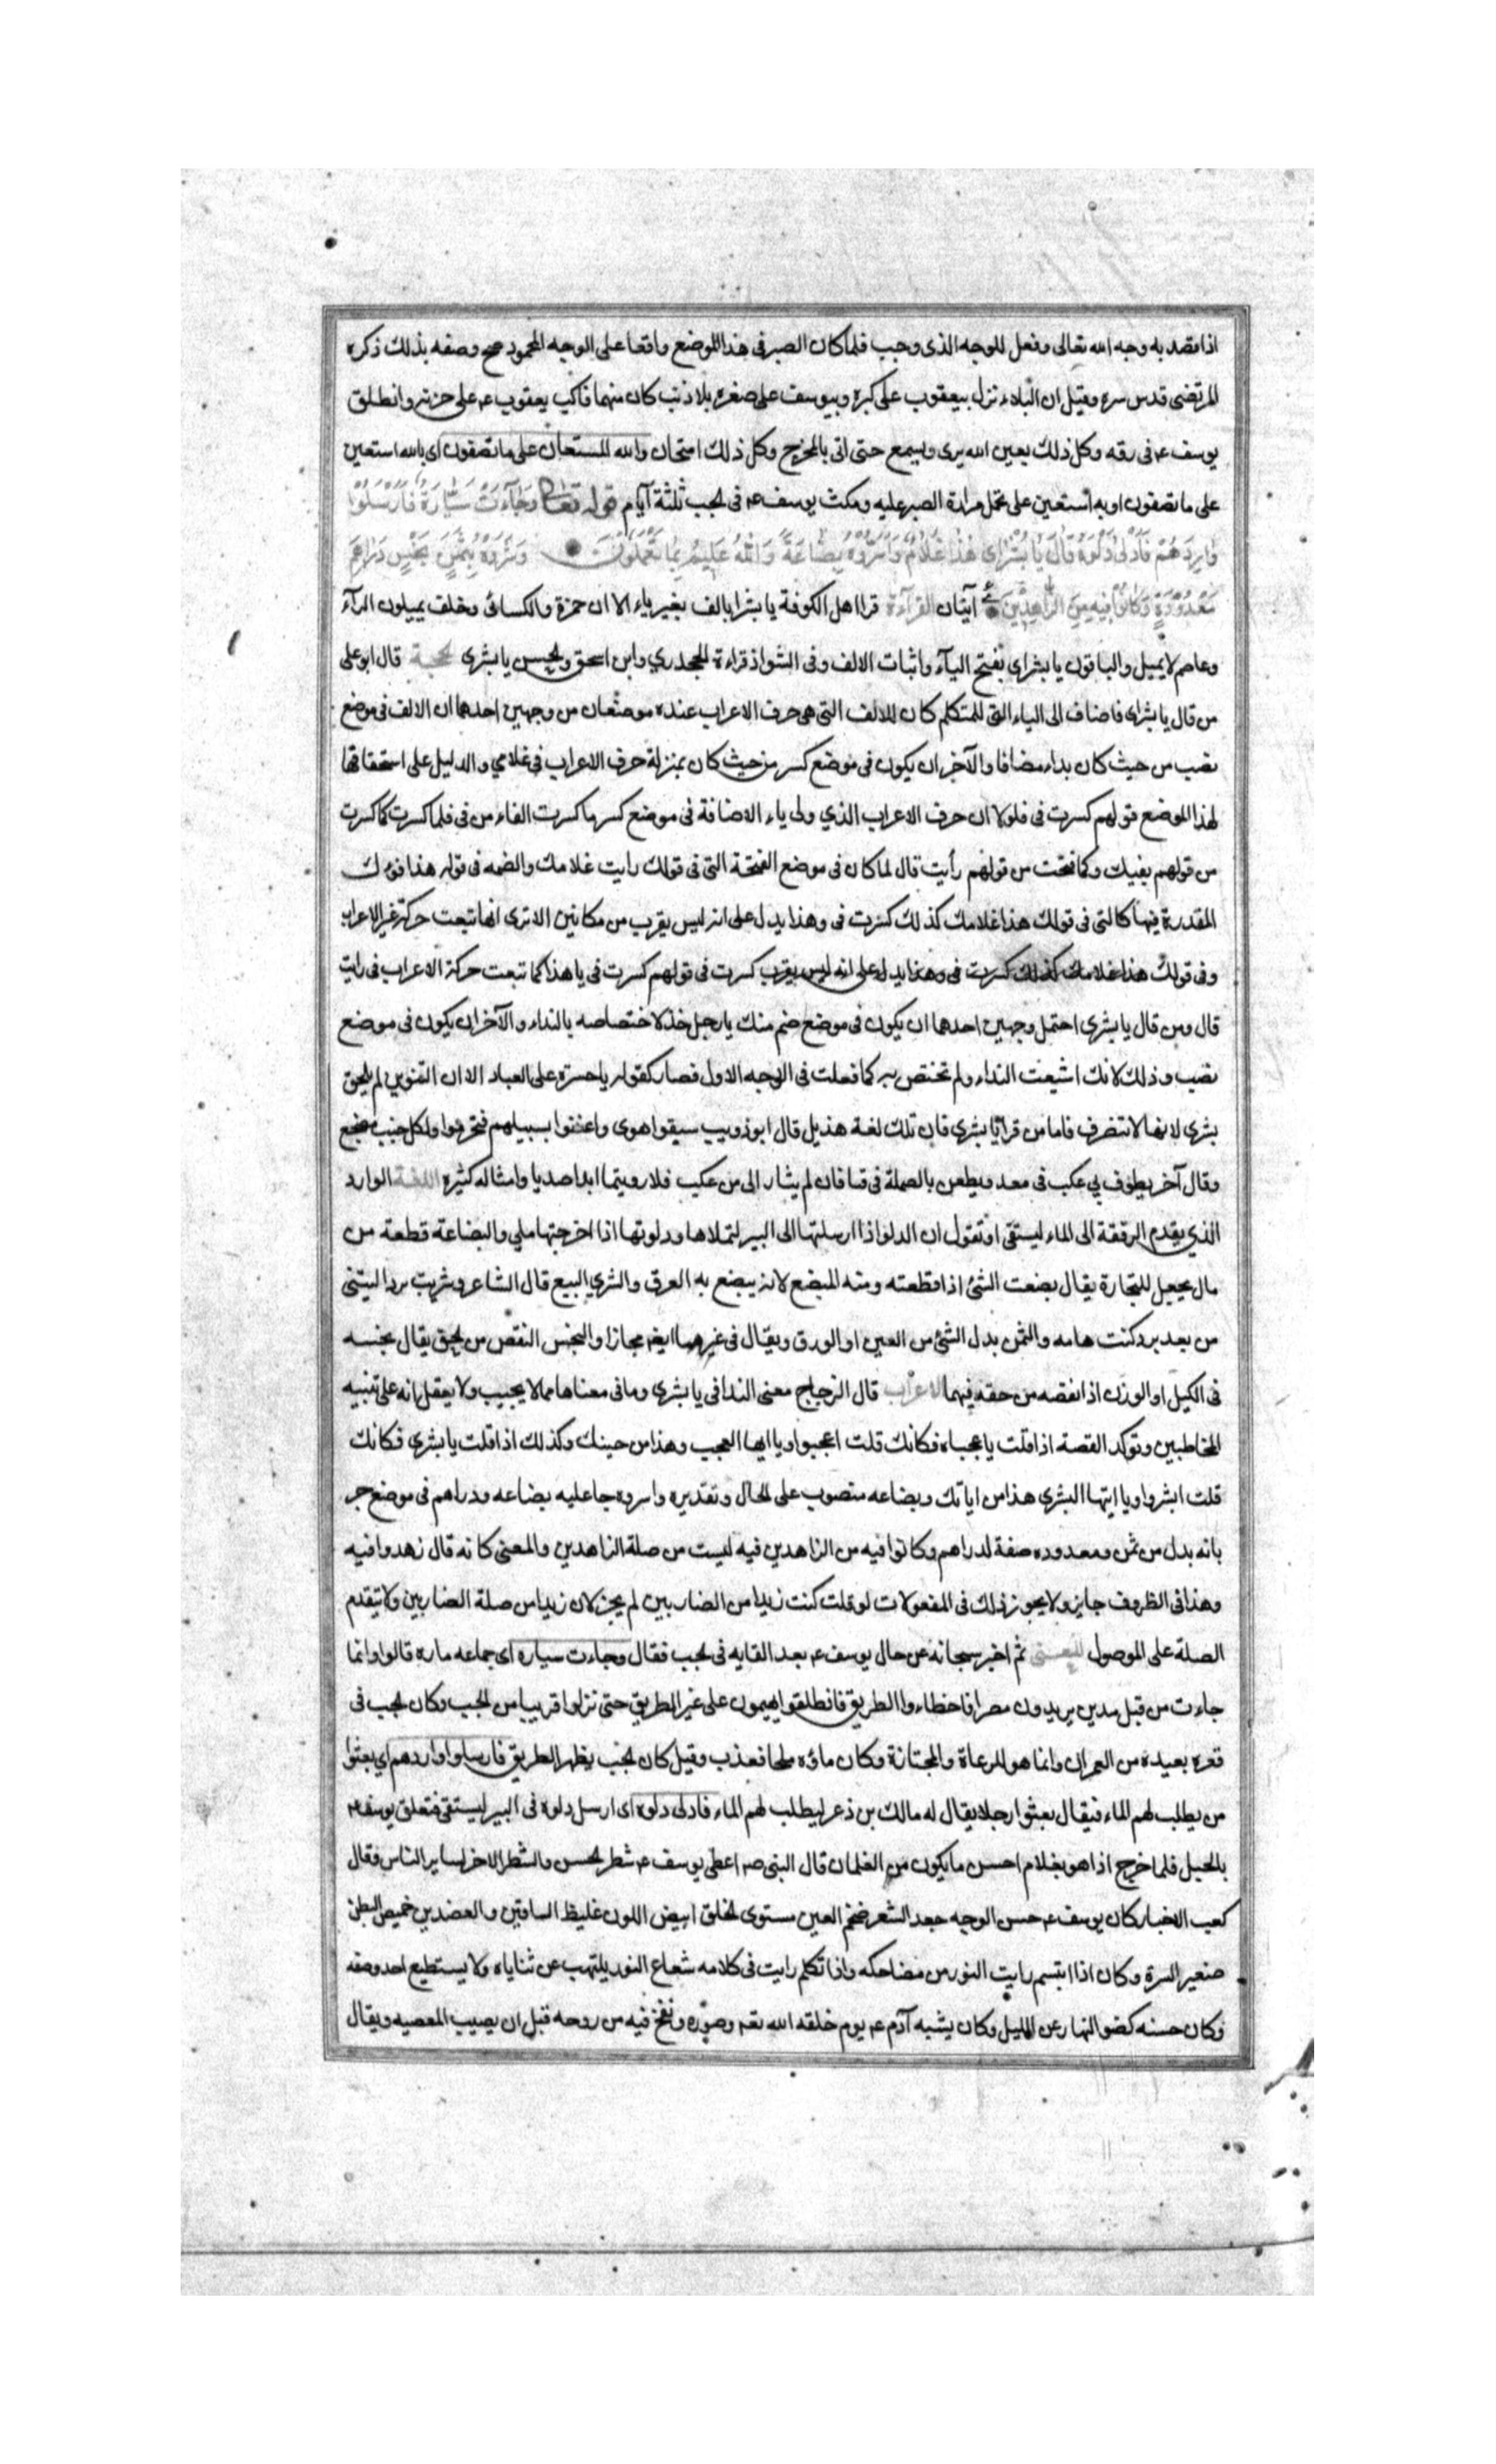 اذا قصد به وجه الله تعالى وفعل للوجه الذى وجب فلما كان الصبر فى هذا الموضع واقعا على الوجه المحمود صح وصفه بذلك ذكره
المرتضى قدس سره وقيل ان البلاء نزل بيعقوب على كبره وبيوسف على صغره بلا ذنب كان منهما فاكب يعقوب عم على حزنه وانطلق
يوسف عم فى رقه وكل ذلك بعين الله يرى ويسمع حتى اتى بالمخرج وكل ذلك امتحان والله المستعان على ما تصفون اى بالله استعين
على ما تصفون او به أستعين على تحمل مرارة الصبر عليه ومكث يوسف عم فى لجب ثلثة آيام قوله تعالى وَجَآءَتْ سَيَّارَةٌ فَاَرْسَلُوْا
وَارِدَهُمْ فَاَدْلٰى دَلْوَهُ قَالَ يَا بُشْرٰاىَ هٰذَا غُلَامٌ وَاَسَرُّوْهُ بِضَاعَةً وَاللّٰهُ عَلِيْمٌ بِمَا يَعْمَلُوْنَ وَشَرَوْهُ بِثَمَنٍ بَخْسٍ دَرٰاهِمَ
مَعْدُوْدَةٍ وَكَانُوْا فِيْهِ مِنَ الزّٰاهِدِيْنَ آيتان القرآءة قرا اهل الكوفة يا بشرا بالف بغير ياء الا ان حمزة والكسائى وخلف يميلون الرآء
وعاصم لا يميل والباقون يا بشراى بفتح اليآء واثبات الالف وفى الشواذ قراءة الجحدري وابن اسحق ولحسن يا بشرى لحجة قال ابو على
من قال يا بشراى فاضاف الى الياء التى للمتكلم كان للالف التى هى حرف الاعراب عنده موضعان من وجهين احدهما ان الالف فى موضع
نصب من حيث كان نداء مضافا والآخر ان يكون فى موضع كسر من حيث كان بمنزلة حرف الاعراب فى غلامي والدليل على استحقاقها
لهذا الموضع قولهم كسرت فى فلولا ان حرف الاعراب الذي ولى ياء الاضافة فى موضع كسر ما كسرت الفاء من فى فلما كسرت كما كسرت
من قولهم بفيك وكما فتحت من قولهم رأيت قال لما كان فى موضع الفتحة التى فى قولك رايت غلامك والضمه فى قوله هذا فوك
المقدرة فيها كالتى فى قولك هذا غلامك كذلك كسرت فى وهذا يدل على انه ليس يقرب من مكانين الا ترى انها تبعت حركة غير الاعراب
وفى قولك هذا غلامك كذلك كسرت فى وهذا يدل على انه ليس يقرب كسرت فى قولهم كسرت فى يا هذا كما تبعت حركة الاعراب فى رايت
قال ومن قال يا بشرى احتمل وجهين احدهما ان يكون فى موضع ضم منك يا رجل خذ لاختصاصه بالنداء والآخر ان يكون فى موضع
نصب وذلك لانك اشيعت النداء ولم تختص به كما فعلت فى الوجه الاول فصار كقوله يا حسرة على العباد الا ان التنوين لم يلحق
بشرى لانها لا تنصرف فاما من قرا يا بشرى فان تلك لغة هذيل قال ابو ذويب سبقوا هوى واعنقوا بسبيلهم فتخرموا ولكل جنب مضجع
وقال آخر يطوف بي عكب فى معد ويطعن بالصملة فى قفا فان لم يثار الى من عكيب فلا رويتما ابدا صديا وامثاله كثيره اللغة الوارد
الذي يقدم الرفقة الى الماء ليستقى او تقول ان الدلو اذا ارسلتها الى البير لتملاها ودلوتها اذا اخرجتها ملي والبضاعة قطعة من
مال يجعل للتجارة يقال بضعت الشئ اذا قطعته ومنه المبضع لانه يبضع به العرق والشري البيع قال الشاعر وشريت بردا ليتنى
من بعد برد كنت هامه والثمن بدل الشئ من العين او الورق ويقال فى غيرهما ايضا مجازا والبخس النقص من لحق يقال بخسه
فى الكيل او الوزن اذا نقصه من حقه فيهما الاعراب قال الزجاج معنى الندا فى يا بشرى وما فى معناها مما لا يجيب ولا يعقل انه على تنبيه
المخاطبين وتوكد القصة اذا قلت يا عجباه فكانك قلت اعجبوا ويا ايها العجب وهذا من حينك وكذلك اذا قلت يا بشرى فكانك
قلت ابشروا ويا ايتها البشرى هذا من اياتك وبضاعه منصوب على لحال وتقديره واسروه جاعليه بضاعه ودراهم فى موضع جر
بانه بدل من ثمن ومعدوده صفة لدراهم وكانوا فيه من الزاهدين فيه ليست من صلة الزاهدين والمعنى كانه قال زهدوا فيه
وهذا فى الظروف جايز ولا يجوز ذلك فى المفعولات لو قلت كنت زيدا من الضاربين لم يجز لان زيدا من صلة الضاربين ولا يتقدم
الصلة على الموصول المعنى ثم اخبر سبحانه عن حال يوسف عم بعد القايه فى لجب فقال وجاءت سياره اى جماعه ماره قالوا وانما
جاءت من قبل مدين يريدون مصر فاخطاءوا الطريق فانطلقوا يهيمون على غير الطريق حتى نزلوا قريبا من الجب وكان لجب فى
قعره بعيده من العمران وانما هو للرعاة والمجتازة وكان ماؤه ملحا فعذب وقيل كان لجب بظهر الطريق فارسلوا واردهم اي بعثوا
من يطلب لهم الماء فيقال بعثوا رجلا يقال له مالك بن ذعر ليطلب لهم الماء فادلى دلوه اى ارسل دلوه فى البير ليستقى فتعلق يوسف عم
بالحبل فلما خرج اذا هو بغلام احسن ما يكون من الغلمان قال النبى صم اعطى يوسف عم شطر لحسن والشطر الاخر لساير الناس فقال
كعب الاخبار كان يوسف عم حسن الوجه جعد الشعر ضخم العين مستوى لخلق ابيض اللون غليظ الساقين والعضدين خميص البطن
صغير السرة وكان اذا ابتسم رايت النور من مضاحكه واذا تكلم رايت فى كلامه شعاع النور يلتهب عن ثناياه ولا يستطيع احد وصفه
وكان حسنه كضو النهار عن الليل وكان يشبه آدم عم يوم خلقه الله تعم وصوّره ونفخ فيه من روحه قبل ان يصيب المعصيه ويقال